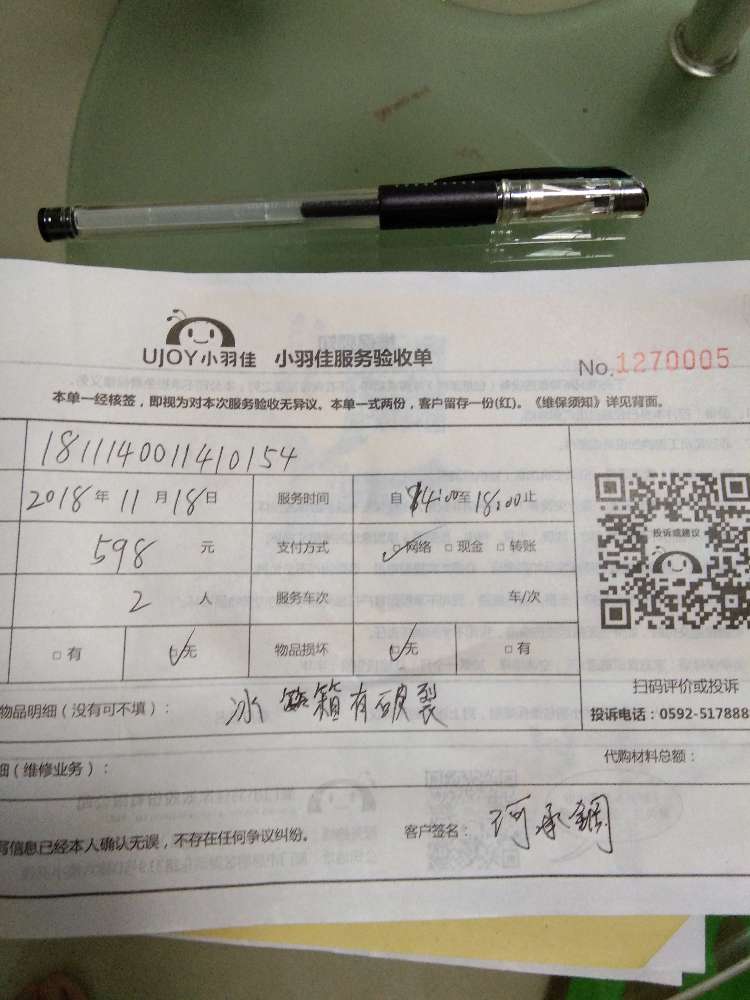 UJOY小羽佳 小羽佳服务验收单
No.1270005
本单一经核签，即视为对本次服务验收无异议。本单一式两份，客户留存一份(红)。《维保须知》详见背面。
1811140011410154
2018年11月18日 服务时间 自14:00至18:00止
598元 支付方式 ☑网络 □现金 □转账
投诉或建议
2人 服务车次 车/次
□有 ☑无 物品损坏 ☑无 □有
扫码评价或投诉
物品明细（没有可不填）： 冰箱有破裂
投诉电话：0592-517888
细（维修业务）： 代购材料总额：
写信息已经本人确认无误，不存在任何争议纠纷。 客户签名：